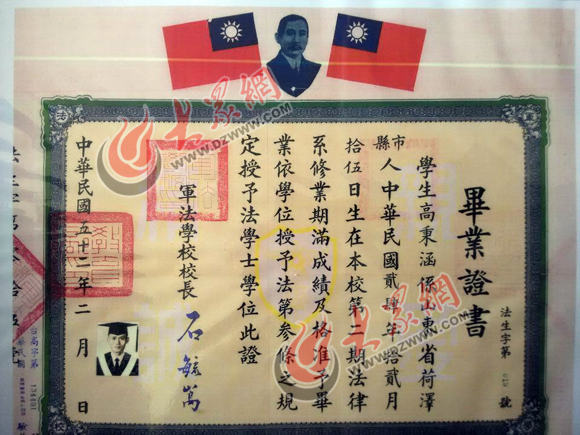 畢業證書
法生字第
號
學生高秉涵係山東省荷澤
市
縣
人中華民國貳肆年拾貳月
拾伍日生在本校第二期法律
系修業期滿成績及格准予畢
業依學位授予法第叁條之規
定授予法學士學位此證
軍法學校校長
石毓嵩
中華民國五十二年二月
日
大眾網
www.dzwww.com
大眾網
www.dzwww.com
大眾網
www.dzwww.com
大眾網
www.dzwww.com